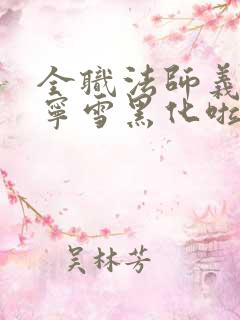 全職法師義
寧雪黑化啦
吴林芳